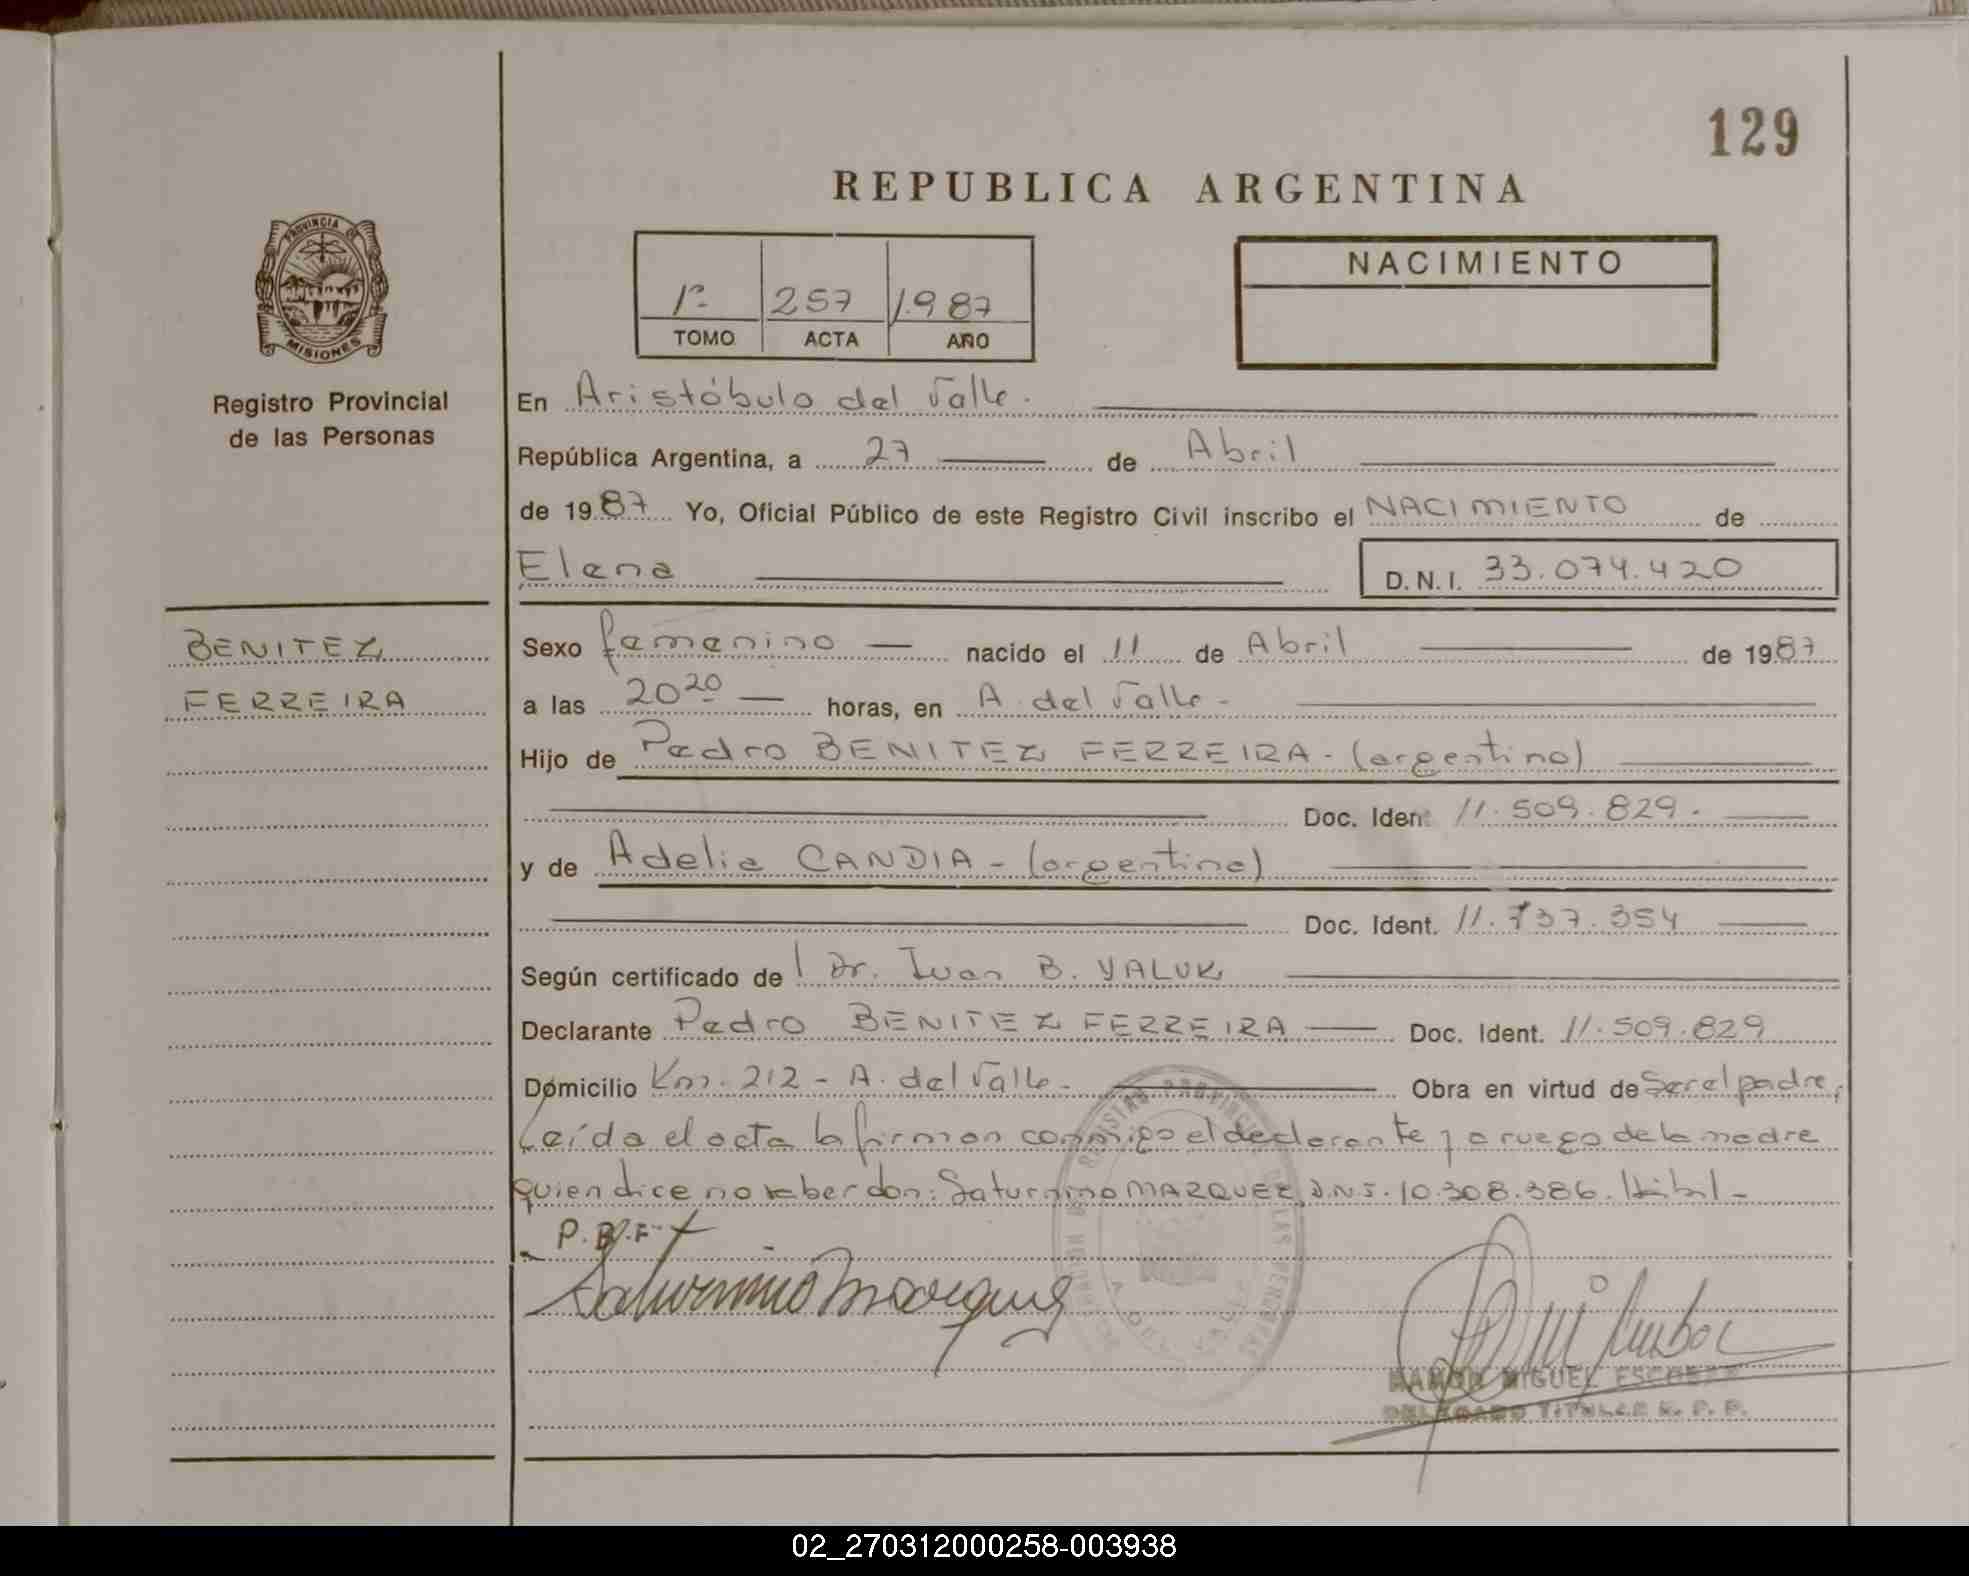 129
REPUBLICA ARGENTINA
PROVINCIA DE
MISIONES
Registro Provincial
de las Personas
1º 257 1.987
TOMO ACTA AÑO
NACIMIENTO
En Aristóbulo del Valle.
República Argentina, a 27 de Abril
de 1987 Yo, Oficial Público de este Registro Civil inscribo el NACIMIENTO de
Elena D.N.I. 33.074.420
BENITEZ
FERREIRA
Sexo femenino nacido el 11 de Abril de 1987
a las 20 20 horas, en A. del Valle-
Hijo de Pedro BENITEZ FERREIRA - (argentino)
Doc. Ident 11.509.829.
y de Adelia CANDIA - (argentina)
Doc. Ident. 11.737.354
Según certificado de Dr. Juan B. YALUK
Declarante Pedro BENITEZ FERREIRA Doc. Ident. 11.509.829
Domicilio Km. 212 - A. del Valle- Obra en virtud de Ser el padre,
Leída el acta la firman conmigo el declarante y a ruego de la madre
quien dice no saber don: Saturnino MARQUEZ D.N.I. 10.308.386.
P.B.F.
Saturnino Marquez
RAMON MIGUEL ESCOBAR
DELEGADO TITULAR R. P. P.
02_270312000258-003938